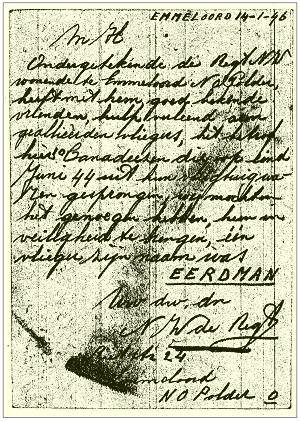 EMMELOORD 14-1-46
M H
Ondergetekende de Regt N W
wonende te Emmeloord N.O. Polder,
heeft met hem goed bekende
vrienden, hulp verleend aan
geallieerden vliegers, het betrof
hier Canadezen die op eind
Juni 44 uit hun vliegtuig wa-
ren gesprongen, wij mochten
het genoegen hebben, hem in
veiligheid te brengen, één
vlieger zijn naam was
EERDMAN
Uw dw. dn
N W de Regt
24
Emmeloord
N O Polder